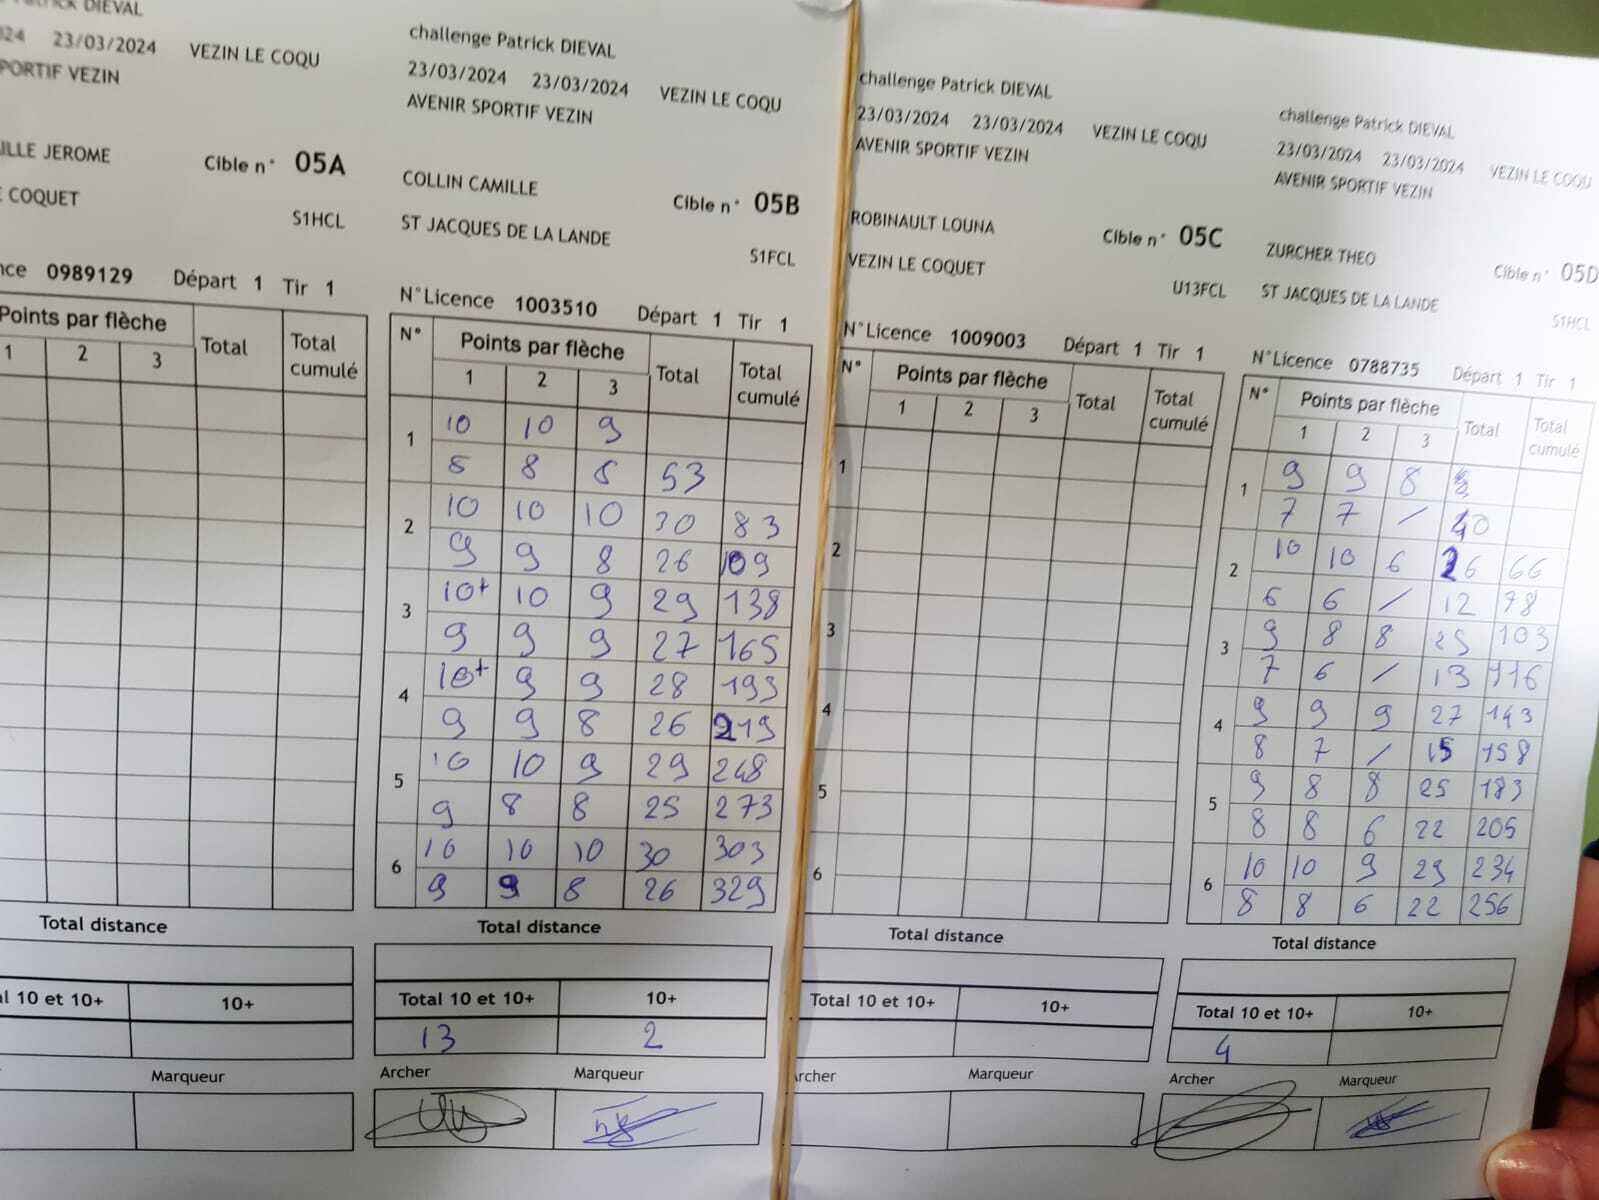 DIEVAL
23/03/2024 VEZIN LE COQU
PORTIF VEZIN
ILLE JEROME
Cible n° 05A
COQUET
S1HCL
nce 0989129 Départ 1 Tir 1
Points par flèche Total Total cumulé
1 2 3
Total distance
al 10 et 10+ 10+
Marqueur
challenge Patrick DIEVAL
23/03/2024 23/03/2024 VEZIN LE COQU
AVENIR SPORTIF VEZIN
COLLIN CAMILLE
Cible n° 05B
ST JACQUES DE LA LANDE
S1FCL
N°Licence 1003510 Départ 1 Tir 1
N° Points par flèche Total Total cumulé
1 2 3
1 10 10 9
8 8 8 53
2 10 10 10 30 83
9 9 8 26 109
3 10+ 10 9 29 138
9 9 9 27 165
4 10+ 9 9 28 193
9 9 8 26 219
5 10 10 9 29 248
9 8 8 25 273
6 10 10 10 30 303
9 9 8 26 329
Total distance
Total 10 et 10+ 10+
13 2
Archer Marqueur
challenge Patrick DIEVAL
23/03/2024 23/03/2024 VEZIN LE COQU
AVENIR SPORTIF VEZIN
ROBINAULT LOUNA
Cible n° 05C
VEZIN LE COQUET
U13FCL
N°Licence 1009003 Départ 1 Tir 1
N° Points par flèche Total Total cumulé
1 2 3
1
2
3
4
5
6
Total distance
Total 10 et 10+ 10+
rcher Marqueur
challenge Patrick DIEVAL
23/03/2024 23/03/2024 VEZIN LE COQU
AVENIR SPORTIF VEZIN
ZURCHER THEO
Cible n° 05D
ST JACQUES DE LA LANDE
S1HCL
N°Licence 0788735 Départ 1 Tir 1
N° Points par flèche Total Total cumulé
1 2 3
1 9 9 8
7 7 / 40
2 10 10 6 26 66
6 6 / 12 78
3 9 8 8 25 103
7 6 / 13 116
4 9 9 9 27 143
8 7 / 15 158
5 9 8 8 25 183
8 8 6 22 205
6 10 10 9 29 234
8 8 6 22 256
Total distance
Total 10 et 10+ 10+
4
Archer Marqueur